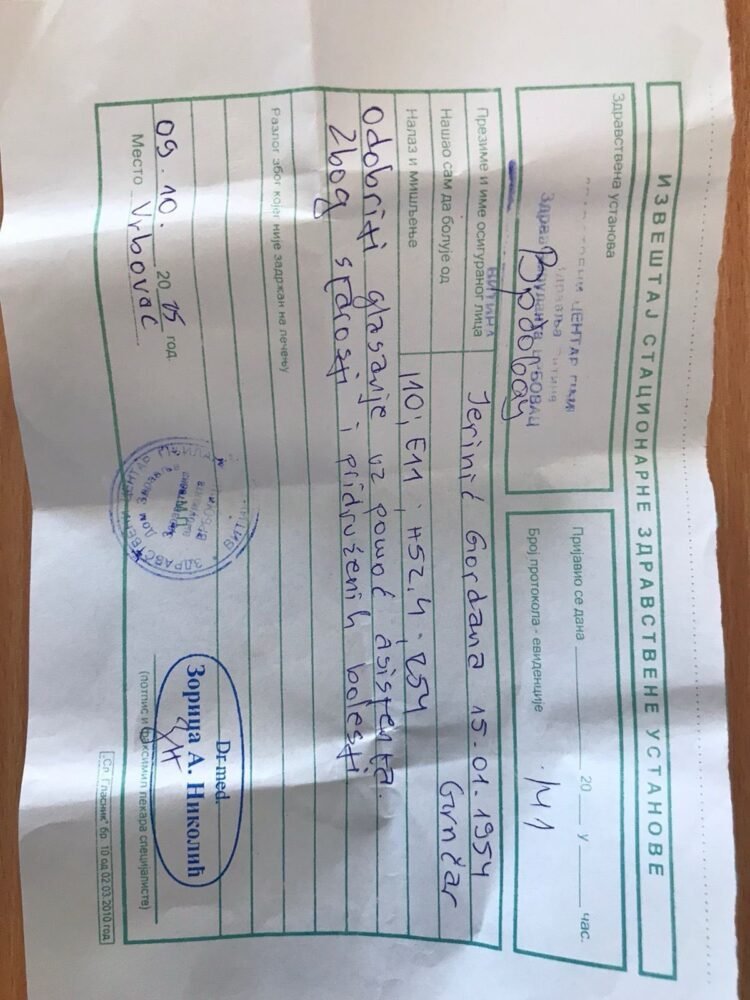 ИЗВЕШТАЈ СТАЦИОНАРНЕ ЗДРАВСТВЕНЕ УСТАНОВЕ
Здравствена установа
ЦЕНТАР
Врбовац
ВИТИНА
Пријавио се дана 20 у час.
Број протокола - евиденције 141
Презиме и име осигураног лица Jerinić Gordana 15.01.1954
Нашао сам да болује од Grnčar
Налаз и мишљење I10; E11; H52.4; Z54
Odobriti glasanje uz pomoć asistenta
zbog starosti i pridruženih bolesti
Разлог због којег није задржан на лечењу
09.10. 20 год.
Место Vrbovac
Dr med.
Зорица А. Николић
(потпис и факсимил лекара специјалисте)
„Ср. Гласник“ бр. 10 од 02.03.2010 год.